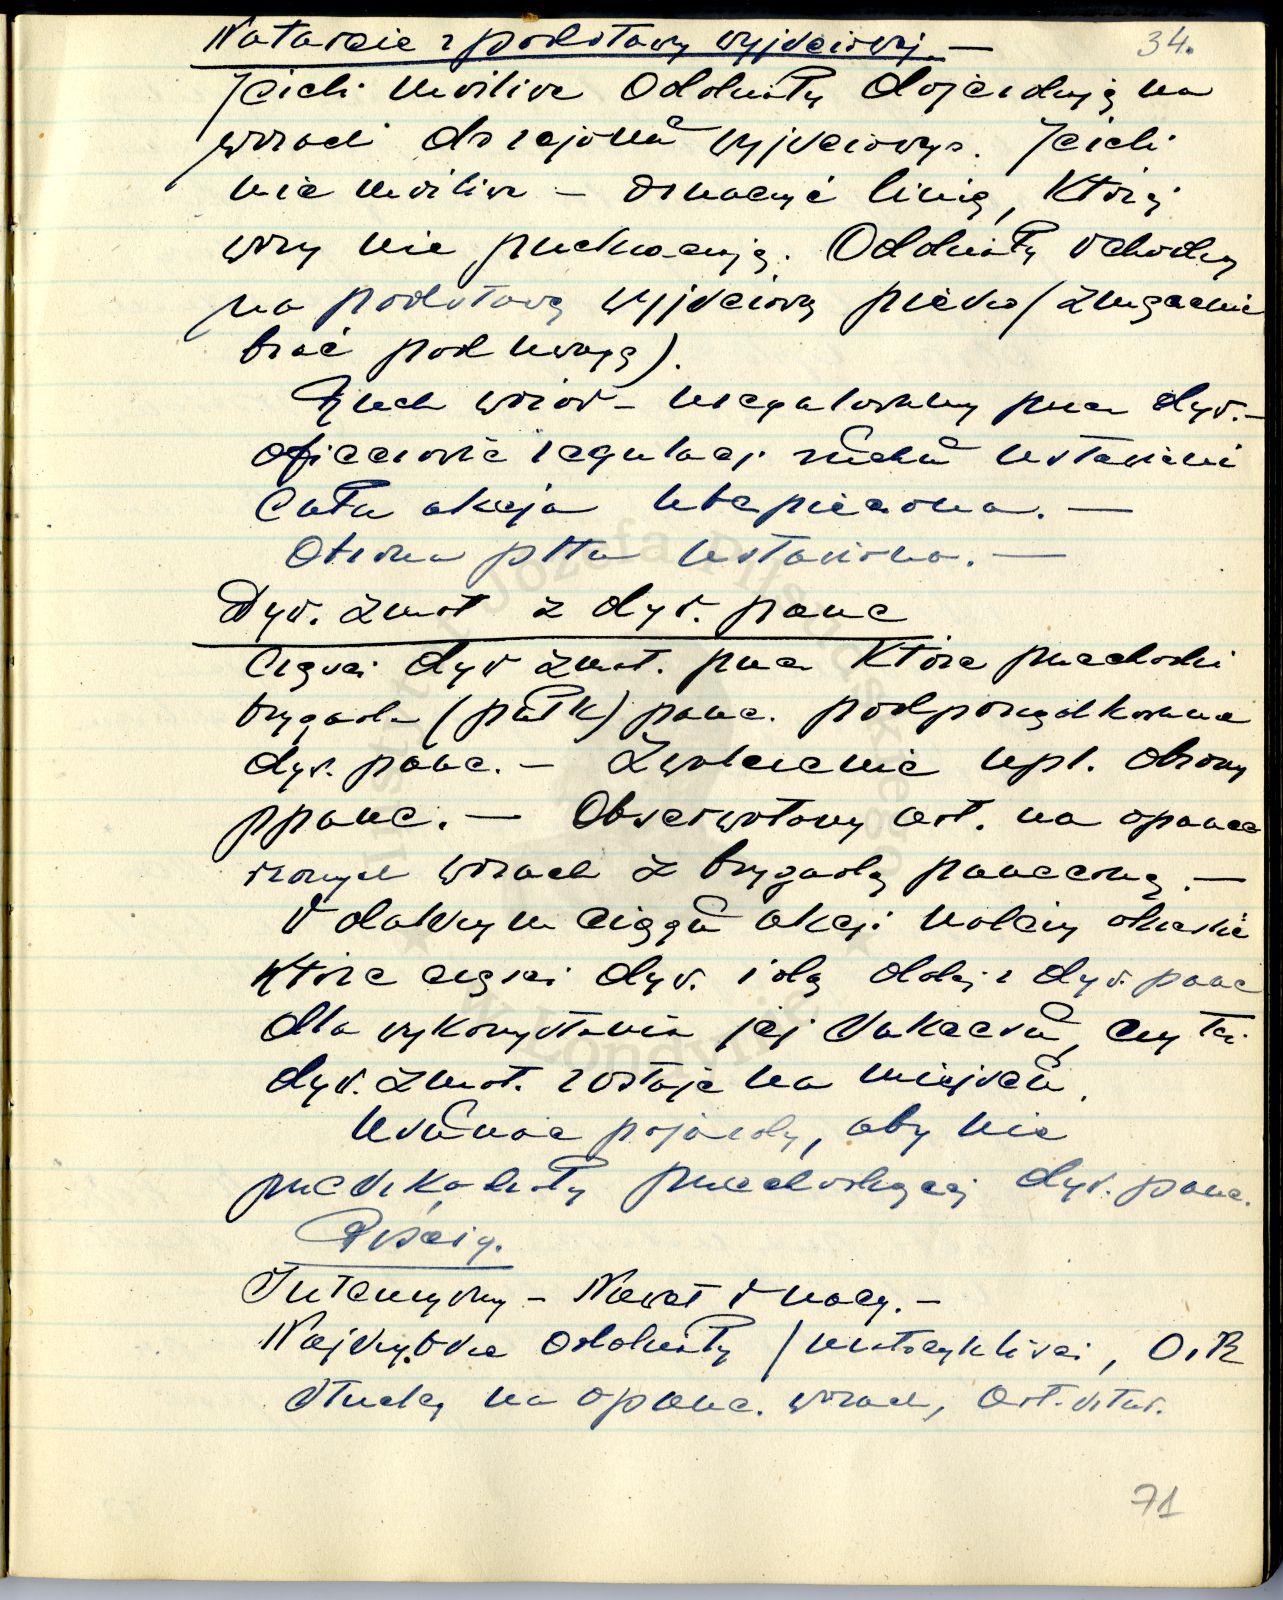 Natarcie z podstawy wyjściowej. — 34.
Jeżeli możliwe oddziały dojeżdżają na
wozach do rejonu wyjściowego. Jeżeli
nie możliwe — oznaczyć linię, której
wozy nie przekraczają. Oddziały schodzą
na podstawę wyjściową pieszo (zmęczenie
brać pod uwagę).
Ruch wozów — uregulowany przez dyw. —
oficerowie regulacji ruchu ustawieni
Cała akcja ubezpieczona. —
Obrona pltn ustawiona. —
Dyw. zmot z dyw. panc
Część dyw zmot. przez które przechodzi
brygada (pułk) panc. podporządkowana
dyw. panc. — Zwolnienie npl. obrony
ppanc. — Obserwatorzy art. na opance-
rzonych wozach z brygadą pancerną. —
W dalszym ciągu akcji należy określić
które części dyw. idą dalej z dyw. panc
dla wykorzystania jej sukcesu, czy też
dyw. zmot. zostaje na miejscu.
Usunąć pojazdy, aby nie
przeszkadzały przechodzącej dyw. panc.
Pościg.
Intensywny — Nawet w nocy. —
Najszybsze oddziały (motocykliści, O.R
strzelcy na opanc. wozach, art. sztur.
71
Józefa Piłsudskiego
w Londynie